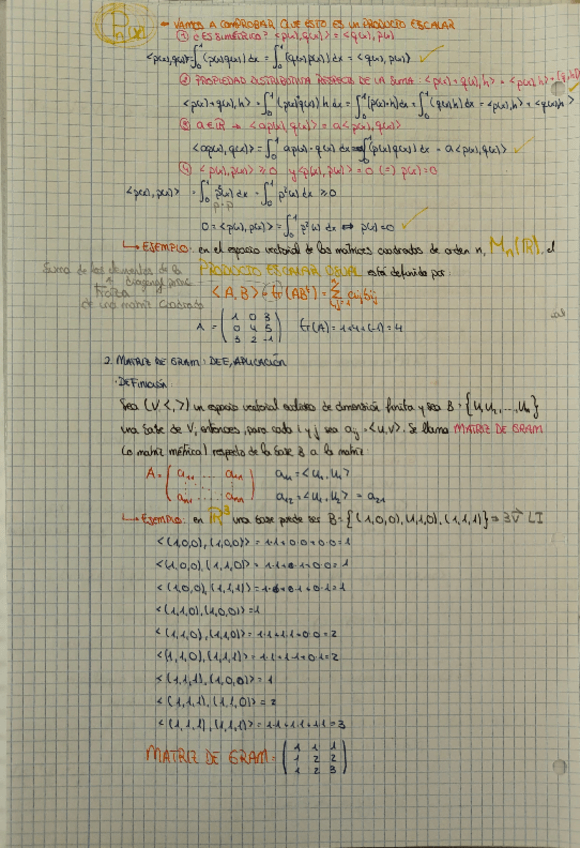 Pn(x) → VAMOS A COMPROBAR QUE ESTO ES UN PRODUCTO ESCALAR
① ¿ES SIMÉTRICO? <p(x),q(x)> = <q(x),p(x)>
<p(x),q(x)> = ∫₀¹ (p(x)q(x)) dx = ∫₀¹ (q(x)p(x)) dx = <q(x), p(x)> ✓
② PROPIEDAD DISTRIBUTIVA RESPECTO DE LA SUMA: <p(x)+q(x),h> = <p(x),h> +
<p(x)+q(x),h> = ∫₀¹ (p(x)+q(x)) h dx = ∫₀¹ (p(x)·h)dx + ∫₀¹ (q(x)h) dx = <p(x),h> + <q(x),h> ✓
③ a∈ℝ → <ap(x),q(x)> = a<p(x),q(x)>
<ap(x),q(x)> = ∫₀¹ ap(x)·q(x) dx = ∫₀¹ (p(x)q(x)) dx = a<p(x),q(x)> ✓
④ <p(x),p(x)> ≥ 0 y <p(x),p(x)> = 0 (=) p(x)=0
<p(x), p(x)> = ∫₀¹ p²(x) dx = ∫₀¹ p²(x) dx ≥ 0
p·p
0 = <p(x),p(x)> = ∫₀¹ p²(x) dx ⇔ p(x)=0 ✓
↳ EJEMPLO: en el espacio vectorial de las matrices cuadradas de orden n, Mn(ℝ), el
Suma de los elementos de la PRODUCTO ESCALAR USUAL está definido por:
diagonal princ
Traza
de una matriz cuadrada
<A, B> = tr(ABᵗ) = Σ aij bij
A = ( 1 0 3
0 4 5
3 2 -1 ) tr(A) = 1+4+(-1) = 4
2. MATRIZ DE GRAM: DEF, APLICACIÓN
· DEFINICIÓN:
Sea (V <,>) un espacio vectorial euclídeo de dimensión finita y sea B = {u₁, u₂, ..., uₙ}
una base de V, entonces, para cada i y j sea aij = <u,v>. Se llama MATRIZ DE GRAM
(o matriz métrica) respecto de la base B a la matriz:
A = ( a₁₁ .... a₁ₙ a₁₁ = <u₁, u₁>
aₙ₁ .... aₙₙ ) a₁₂ = <u₁, u₂> = a₂₁
↳ EJEMPLO: en ℝ³ una base puede ser B = {(1,0,0), (1,1,0), (1,1,1)} → 3V⃗ LI
<(1,0,0), (1,0,0)> = 1·1+0·0+0·0=1
<(1,0,0), (1,1,0)> = 1·1+0·1+0·0=1
<(1,0,0), (1,1,1)> = 1·1+0·1+0·1=1
<(1,1,0), (1,0,0)> = 1
<(1,1,0), (1,1,0)> = 1·1+1·1+0·0=2
<(1,1,0), (1,1,1)> = 1·1+1·1+0·1=2
<(1,1,1), (1,0,0)> = 1
<(1,1,1), (1,1,0)> = 2
<(1,1,1), (1,1,1)> = 1·1+1·1+1·1=3
MATRIZ DE GRAM = ( 1 1 1
1 2 2
1 2 3 )